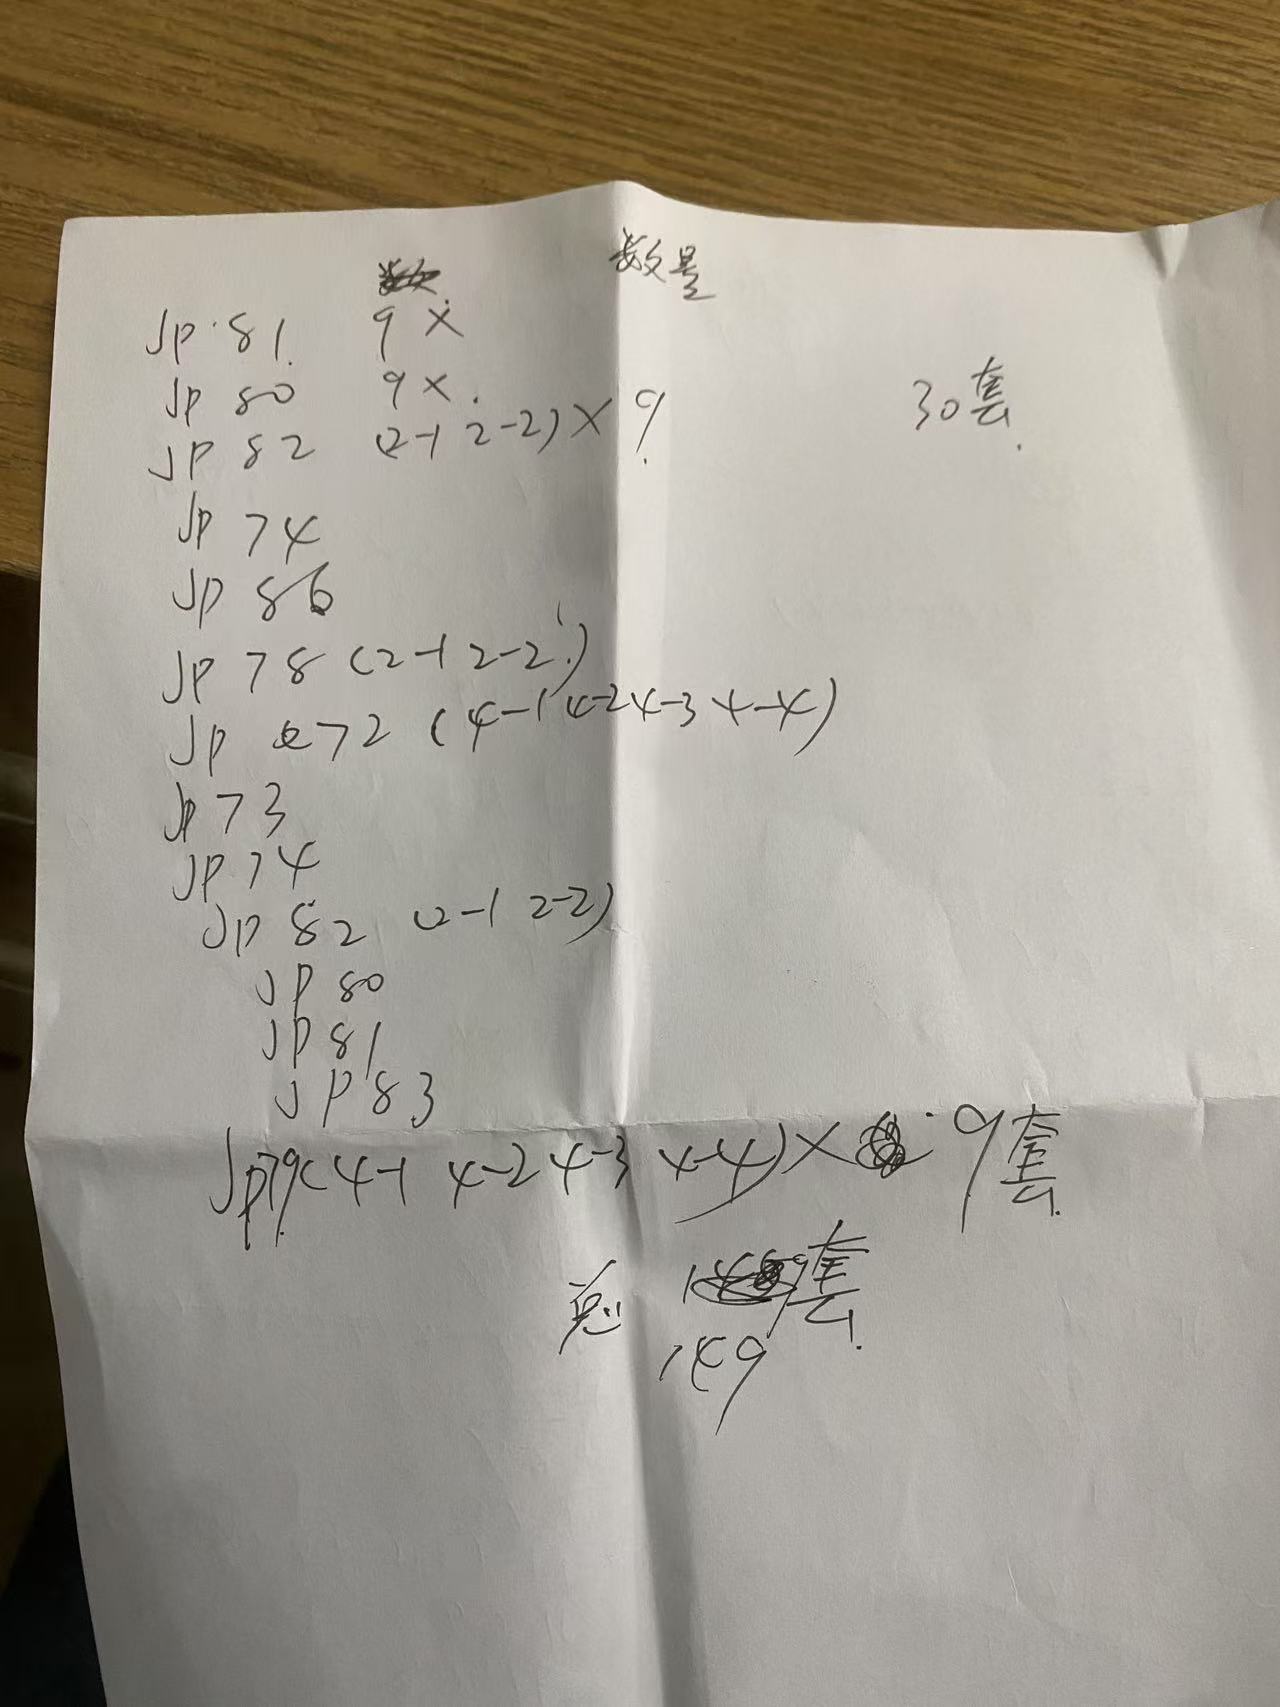 数量
JP 81 9×
JP 80 9×
30套
JP 82 (2-1 2-2)×9
JP 74
JP 86
JP 78 (2-1 2-2)
JP 72 (4-1 4-2 4-3 4-4)
JP 73
JP 74
JP 82 (2-1 2-2)
JP 80
JP 81
JP 83
JP79(4-1 4-2 4-3 4-4)× 9套
总 套
149